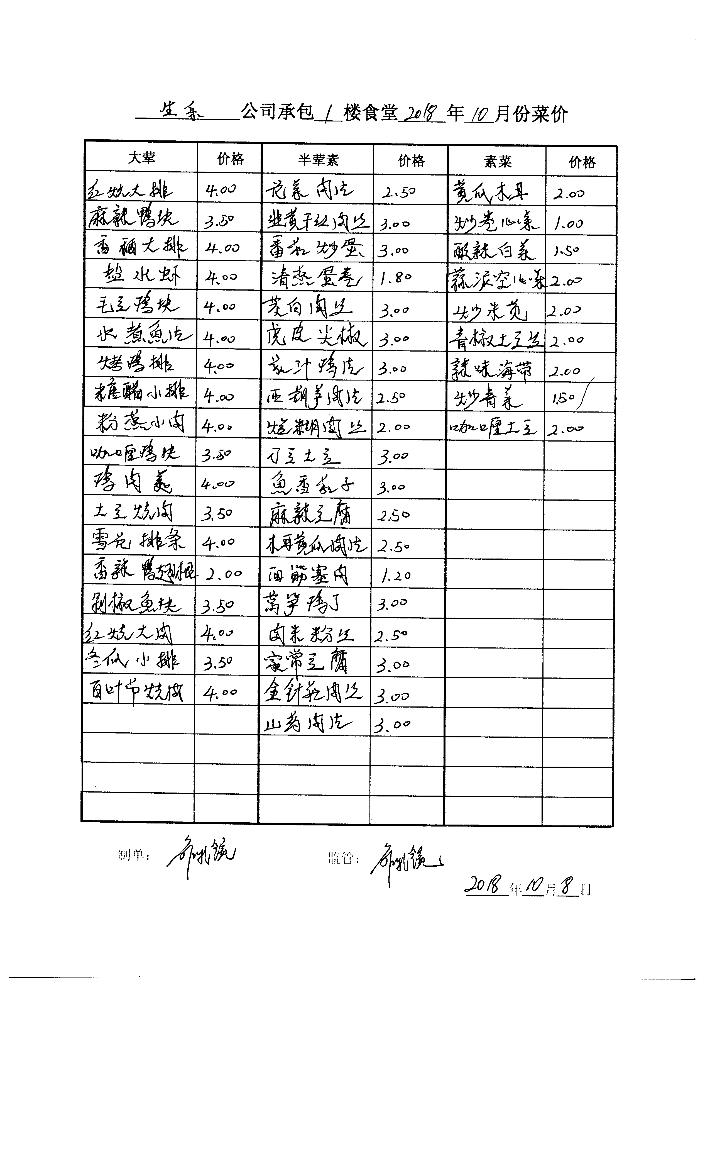 公司承包 1 楼食堂 2018 年 10 月份菜价
大荤 价格 半荤素 价格 素菜 价格
红烧大排 4.00 花菜肉片 2.50 黄瓜木耳 2.00
麻辣鸭块 3.50 韭黄干丝肉丝 3.00 炒卷心菜 1.00
香酥大排 4.00 番茄炒蛋 3.00 酸辣白菜 1.50
盐水虾 4.00 清蒸蛋卷 1.80 蒜泥空心菜 2.00
毛豆鸡块 4.00 茭白肉丝 3.00 炒米苋 2.00
水煮魚片 4.00 虎皮尖椒 3.00 青椒土豆丝 2.00
烤鸡排 4.00 茄汁鸡片 3.00 辣味海带 2.00
糖醋小排 4.00 西胡芦肉片 2.50 炒青菜 1.50
粉蒸小肉 4.00 糊肉丝 2.00 咖喱土豆 2.00
咖喱鸡块 3.50 刀豆土豆 3.00
鸡肉 4.00 魚香茄子 3.00
土豆烧肉 3.50 麻辣豆腐 2.50
雪花排条 4.00 木耳黄瓜肉片 2.50
香辣鸭翅根 2.00 面筋塞肉 1.20
剁椒魚块 3.50 莴笋鸡丁 3.00
红烧大肉 4.00 肉末粉丝 2.50
冬瓜小排 3.50 家常豆腐 3.00
百叶节烧肉 4.00 金针菇肉丝 3.00
山药肉片 3.00
制单： 监管：
2018 年 10 月 8 日